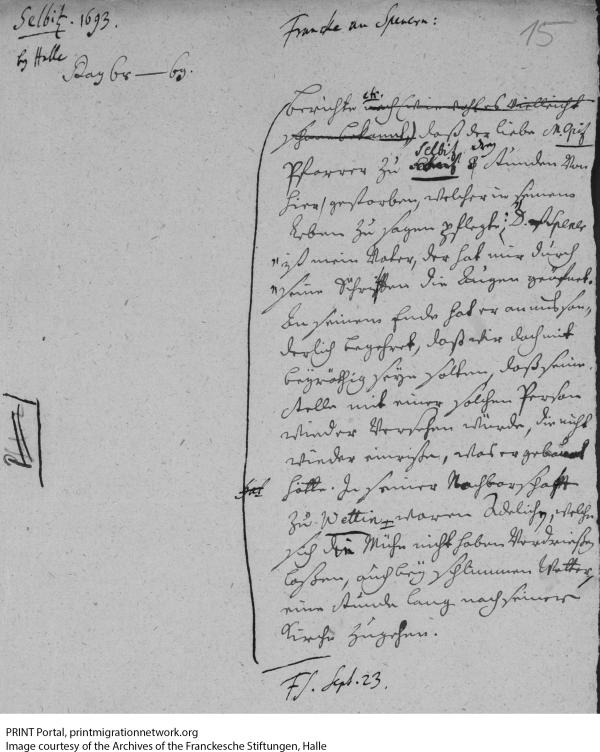 Selbitz. 1693.
by Halle
pag 68 — 69.
Francke an Spenern:
15
berichte etc. auch (wie wohl es vielleicht
schon bekannt) daß der liebe M.
Pfarrer zu Selbitz drey Stunden von
hier, gestorben, welcher in seinem
Leben zu sagen pflegte: D. Spener
"ist mein Vater, der hat mir durch
"seine Schrifften die Augen geöfnet.
An seinem Ende hat er an uns son-
derlich begehret, daß wir doch mit
beyräthig seyn solten, daß seine
Stelle mit einer solchen Person
wieder versehen würde, die nicht
wieder einriße, was er gebauet
hätte. In seiner Nachbarschafft
zu Wettin waren Adeliche, welche
sich die Mühe nicht haben verdrießen
laßen, auch bey schlimmen Wetter,
eine Stunde lang nach seiner
Kirche zugehen.
Sept. 23.
PRINT Portal, printmigrationnetwork.org
Image courtesy of the Archives of the Franckesche Stiftungen, Halle